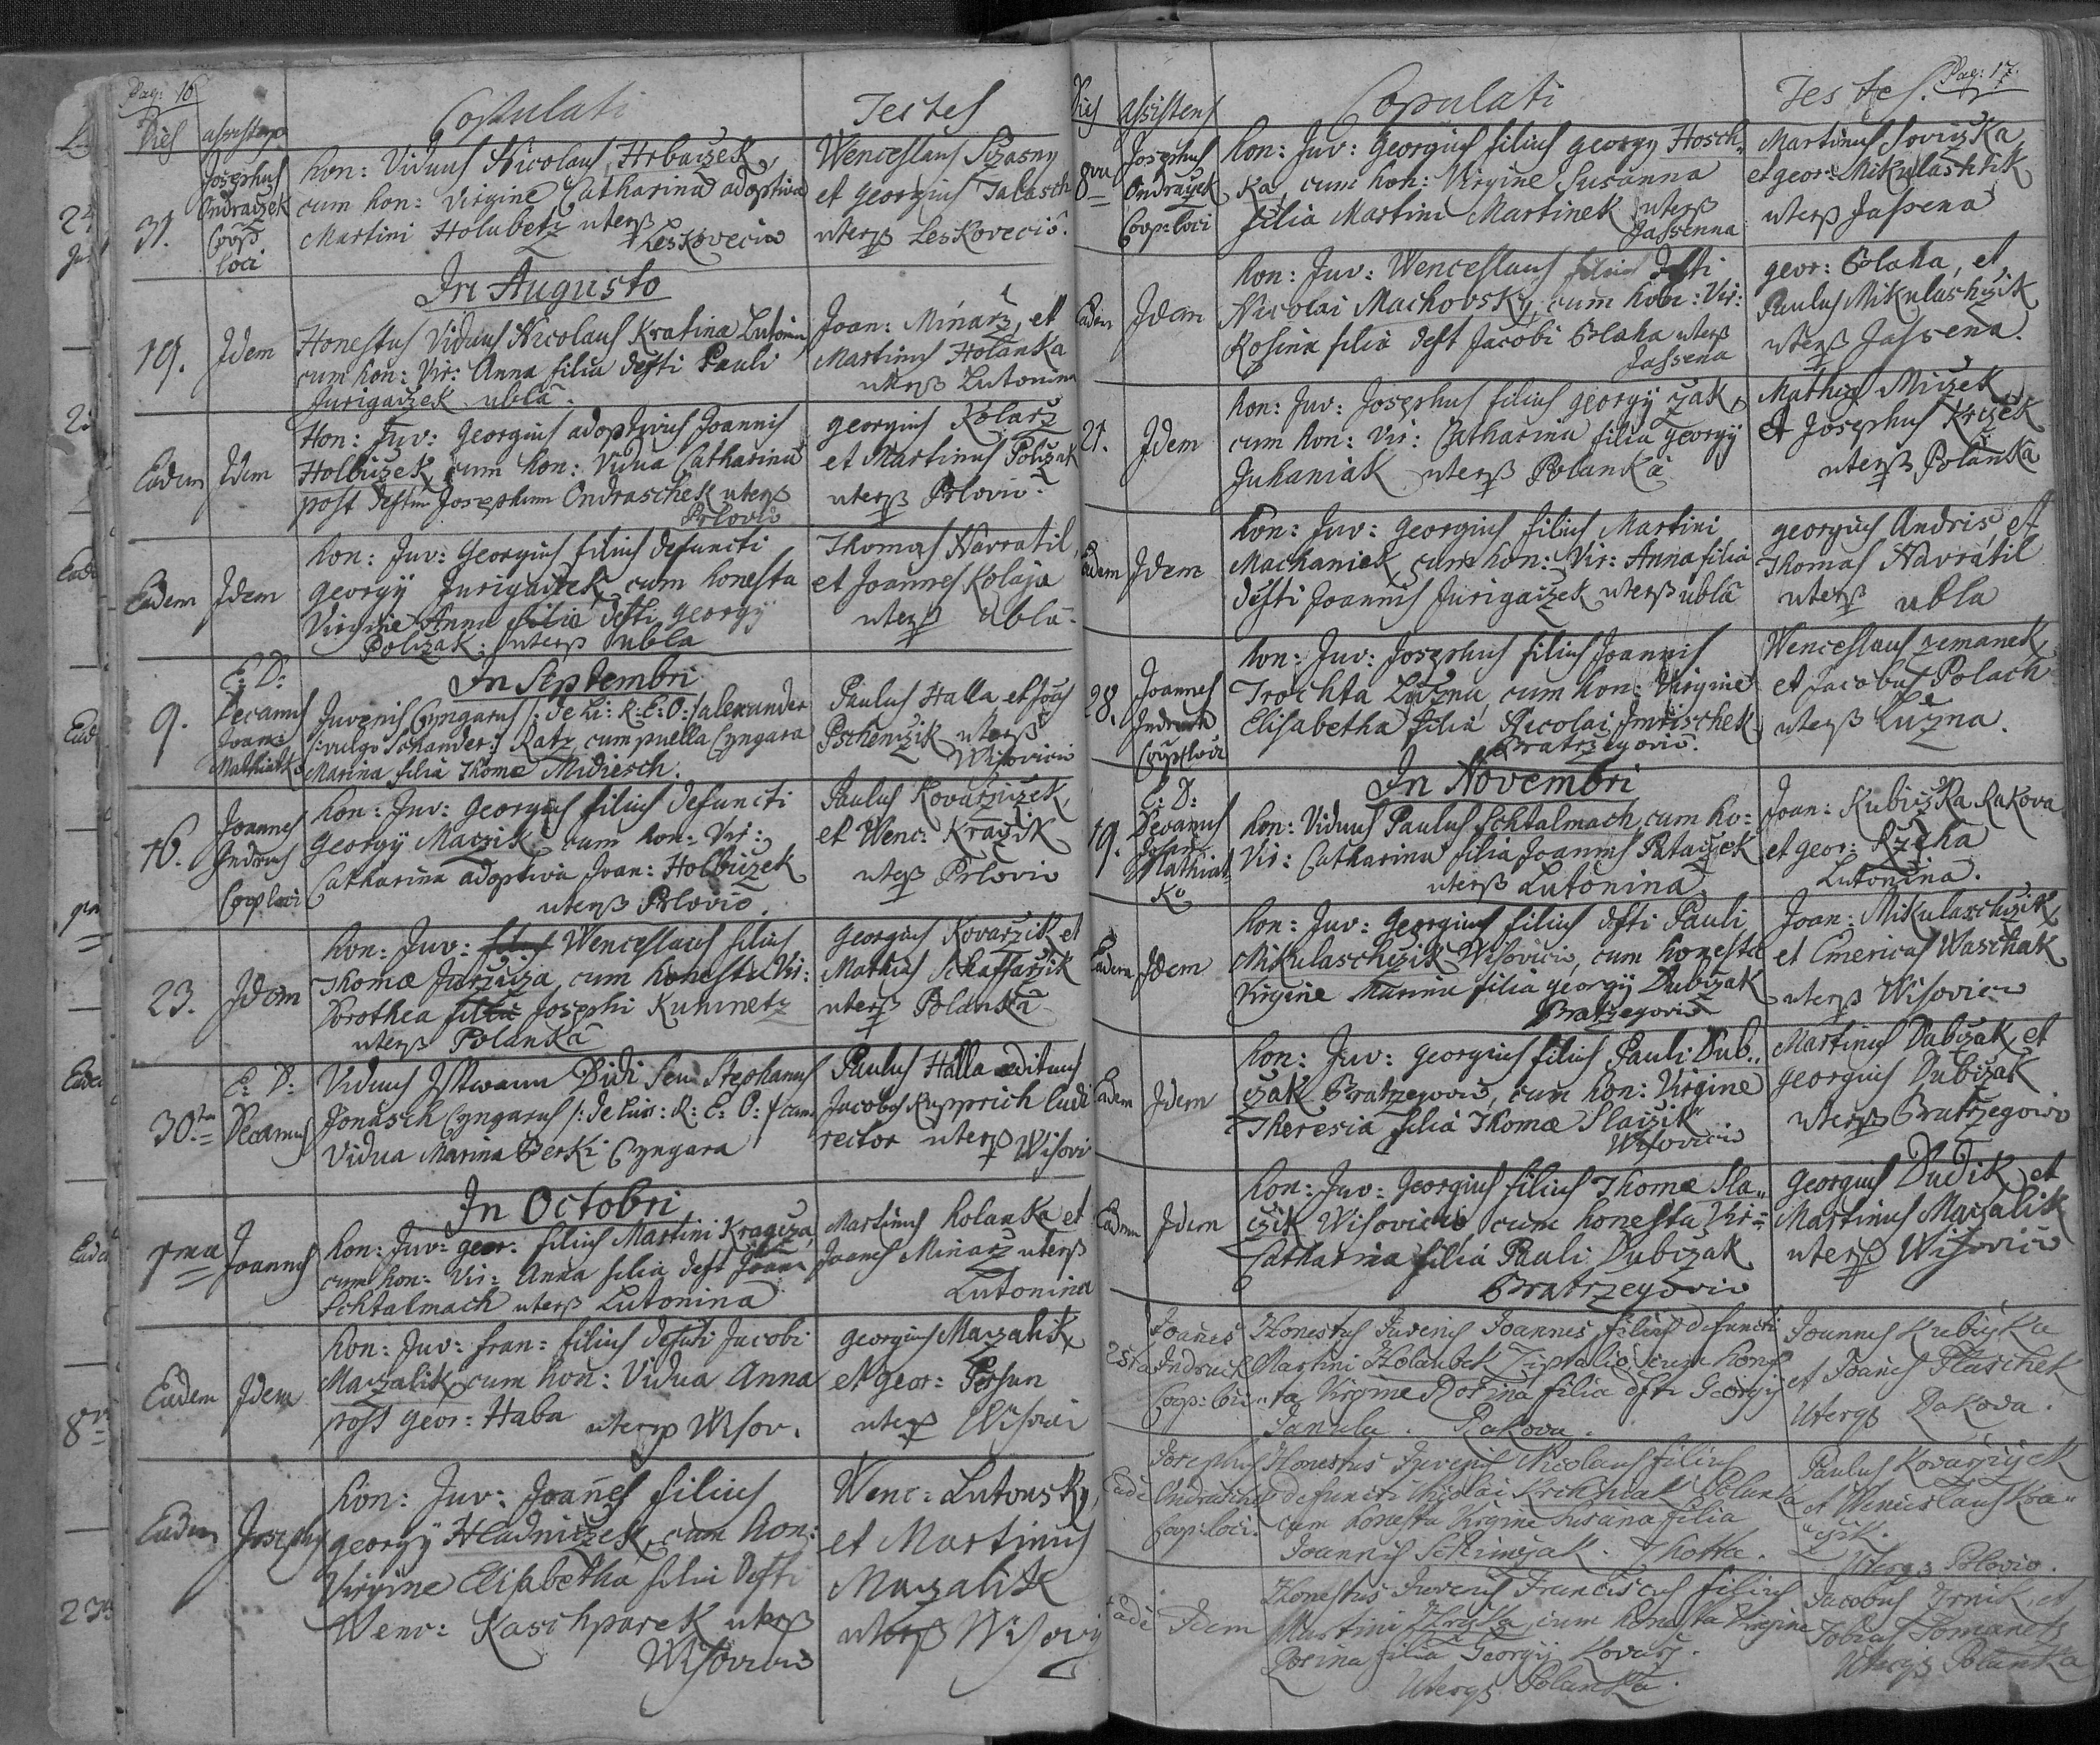 Pag: 16
Dies
Copulati
Testes
31.
Josephus
Ondraczek
Coop.
loci
hon: Viduus Nicolaus Hrbaczek
cum hon: Virgine Catharina adoptiva
Martini Holubetz uterq
Leskovecio
Wenceslaus Sczasny
et georgius Talasch
uterq Leskovecio.
In Augusto
19.
Idem
Honestus Viduus Nicolaus Kratina Lutonin
cum hon: Vir: Anna filia defti Pauli
Jurigaczek ubla.
Joan: Minarz, et
Martinus Holanka
uterq Lutonina
Eadem
Idem
Hon: Juv: georgius adoptivus Joannis
Holbiczek cum hon: Vidua Catharina
post deftum Josephum Ondraschek uterq
Prlovio
georgius Kolarz
et Martinus Policzak
uterq Prlovio
Eadem
Idem
hon: Juv: Georgius filius defuncti
georgy Jurigaczek cum honesta
Virgine Anna filia defti georgy
Policzak: uterq ubla
Thomas Navratil,
et Joannes Kolaja
uterq ubla.
In Septembri
9.
E: D:
Decanus
Joan:
Mathiatko
Juvenis Cyngarus /: de Li: R: E: O: / alexander
/: vulgo Schander :/ Ratz, cum puella Cyngara
Marina filia Thome Midiesch.
Paulus Halla et Joes
Pschenczik uterq
Wisovicio
16.
Joannes
Indruch
Coop loci
hon: Juv: georgius filius defuncti
georgy Maczik cum hon: Vir:
Catharina adoptiva Joan: Holbiczek
uterq Prlovio.
Paulus Kovarziczek,
et Wenc: Kraczik
uterq Prlovio
23.
Idem
hon: Juv: Wenceslaus filius
Thomæ Jurziza, cum honesta Vir:
Dorothea filia Josephi Kuhmetz
uterq Polanka
georgius Kovarzik et
Mathias Schaffarzik
uterq Polanka
30ma
E: D:
Decanus
Viduus Istwann Didi seu Stephanus
Jonasch Cyngarus /: de Lin: R: E: O: / cum
Vidua Marina Berki Cyngara
Paulus Halla ædituus
Jacobus Kupprich ludi
rector uterq Wisovi
In Octobri
1ma
Joannes
hon: Juv: geor: filius Martini Kragcza,
cum hon: Vir: Anna filia deft Joan
Schtalmach uterq Lutonina
Martinus holanka et
Joanes Minarz uterq
Lutonina
Eadem
Idem
hon: Juv: fran: filius defuti Jacobi
Maczalik cum hon: Vidua Anna
post geor: Haba uterq Wisov.
georgius Maczalik
et geor: Persun
uterq Wisovi
Eadem
Josephus
hon: Juv: Joañes filius
georgy Hladniczek, cum hon:
Virgine Elisabetha filia defti
Wenc: Kaschparek uterq
Wisovicio
Wenc: Lutonsky,
et Martinus
Maczalik
uterq Wisovi
Pag: 17.
Dies
Assistens
Copulati
Testes.
8va
Josephus
Ondraczek
Coop: loci
hon: Juv: Georgius filius georgy Hosch„
ka, cum hon: Virgine Susanna
filia Martini Martinek uterq
Jassenna
Martinus Soviczka
et geor: Mikulasstik
uterq Jassena
Eadem
Idem
hon: Juv: Wenceslaus filius defti
Nicolai Machovsky, cum hon: Vir:
Rosina filia deft Jacobi Blaha uterq
Jassena
geor: Blaha, et
Paulus Mikulaschzik
uterq Jassena.
21.
Idem
hon: Juv: Josephus filius georgy Czak,
cum hon: Vir: Catharina filia georgÿ
Juhaniak uterq Polanka
Mathias Miczek
et Josephus Krizek
uterq Polanka
Eadem
Idem
hon: Juv: georgius filius Martini
Machaniek cum hon: Vir: Anna filia
defti Joannis Jurigaczek uterq ubla
georgius Andris, et
Thomas Navratil
uterq ubla
28.
Joannes
Indruch
Coop loci
hon: Juv: Josephus filius Joannis
Trochta Luzna, cum hon: Virgine
Elisabetha filia Nicolai Imrischek
Bratrzegovio.
Wenceslaus zemanek
et Jacobus Polach
uterq Luzna.
In Novembri
19.
E: D:
Decanus
Joan:
Mathiat
ko
hon: Viduus Paulus Schtalmach, cum ho:
Vir: Catharina filia Joannis Pataczek
uterq Lutonina
Joan: Kubiczka Rakova
et geor: Rzeha
Lutonina.
Eadem
Idem
hon: Juv: georgius filius defti Pauli
Mikulaschzik Wisovicio, cum honesta
Virgine Marina filia georgÿ Dubczak
Bratrzegovio
Joan: Mikulaschzik,
et Emericus Waschak
uterq Wisovicio
Eadem
Idem
hon: Juv: georgius filius Pauli Dub„
czak Bratrzegovio, cum hon: Virgine
Theresia filia Thomæ Slaczik
Wisovicio
Martinus Dubczak, et
georgius Dubczak
uterq Bratrzegovio
Eadem
Idem
hon: Juv: Georgius filius Thomæ Sla„
czik Wisovicio cum honesta Vir:
Catharina filia Pauli Dubczak
Bratrzegovio
georgius Dudik, et
Martinus Maczalik
uterq Wisovicio
25ta
Joañes
Indruch
Coop: loci
Honestus Juvenis Joannes filius defuncti
Martini Holaubek cum hones
ta Virgine Rosina filia defti Georgii
Janula. Rakova.
Joannes Kubiczka
et Joanes Plaschek
Uterqz Rakova.
Eadē
Josephus
Ondraschek
Coop: loci.
Honestus Juvenis Nicolaus filius
defuncti Nicolai Krchniak Polanka
cum honesta Virgine Susana filia
Joannis Schimczak. Lhotta.
Paulus Kovarziczek
et Wenceslaus Kra„
czik.
Uterqz Prlovio.
Eadē
Idem
Honestus Juvenis Franciscus filius
Martini cum honesta Virgine
Rosina filia Georgii Kovarz.
Uterqz Polanka.
Jacobus Trnik, et
Tobias Tomanetz
Uterqz Polanka